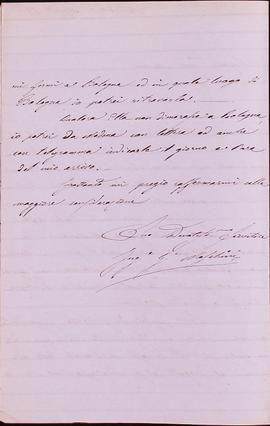 mi fermi a Bologna ed in quale luogo di
Bologna io potrei ritrovarla.
Qualora Ella non dimorasse a Bologna
io potrei da Modena con lettera od anche
con telegramma indicarle il giorno e l'ora
del mio arrivo.
Frattanto mi pregio raffermarmi colla
maggiore considerazione
Suo Devotissimo Servitore
Ing.e G.